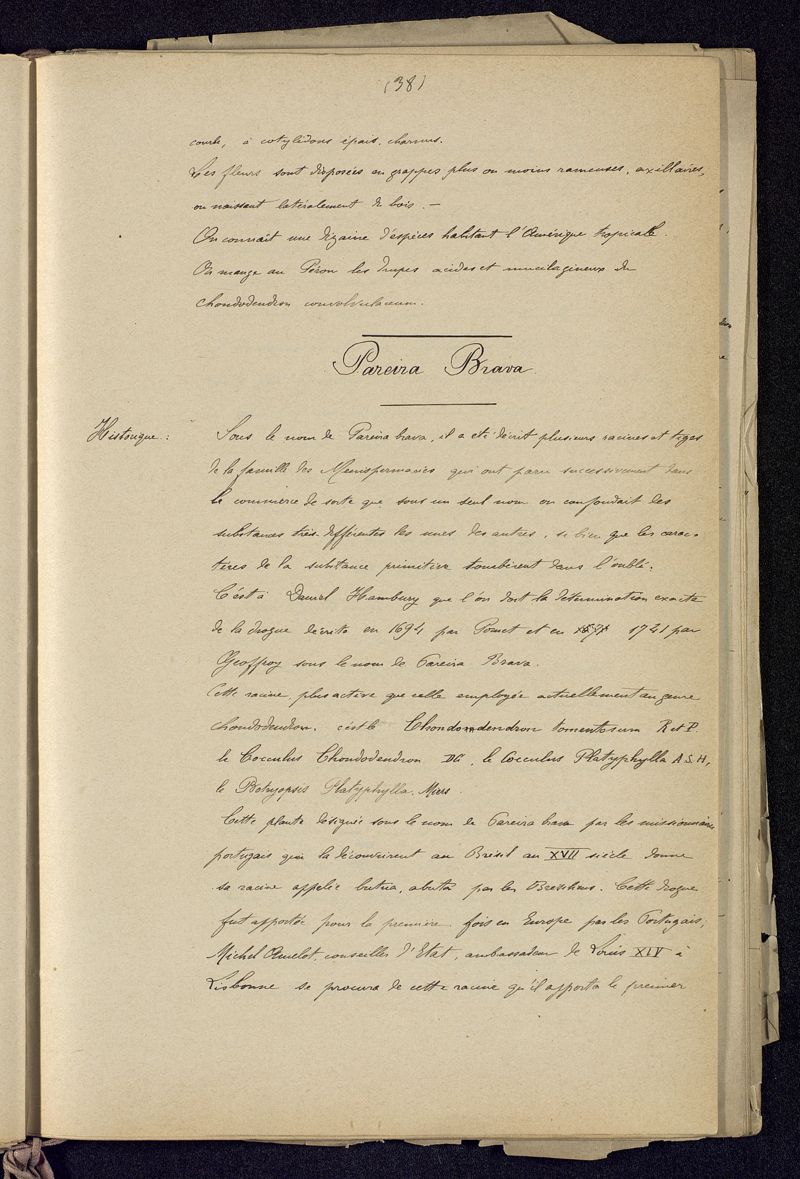 (38)
courbe, à cotylédons épais, charnus.
Les fleurs sont disposées en grappes plus ou moins rameuses, axillaires,
ou naissant latéralement du bois. —
On connaît une dizaine d'espèces habitant l'Amérique tropicale.
On mange au Pérou les drupes acides et mucilagineux du
Chondodendron convolvulaceum.
Pareira Brava
Historique :
Sous le nom de Pareira brava, il a été décrit plusieurs racines et tiges
de la famille des Menispermacées qui ont paru successivement dans
le commerce de sorte que sous un seul nom on confondait des
substances très différentes les unes des autres, si bien que les carac-
tères de la substance primitive tombèrent dans l'oubli.
C'est à Daniel Hambury que l'on doit la détermination exacte
de la drogue décrite en 1694 par Pomet et en 1721 par
Geoffroy sous le nom de Pareira Brava.
Cette racine, plus active que celle employée actuellement au genre
Chondodendron. c'est le Chondondendron tomentosum R et P.
le Cocculus Chondodendron DC, le Cocculus Platyphylla A.S.H,
le Botryopsis Platyphylla. Miers.
Cette plante désignée sous le nom de Pareira brava par les missionnaires
portugais qui la découvrirent au Brésil au XVII siècle donne
sa racine appelée butua, abuta par les Bresiliens. Cette drogue
fut apportée pour la première fois en Europe par les Portugais,
Michel Amelot, conseiller d'Etat, ambassadeur de Louis XIV à
Lisbonne se procura de cette racine qu'il apporta le premier